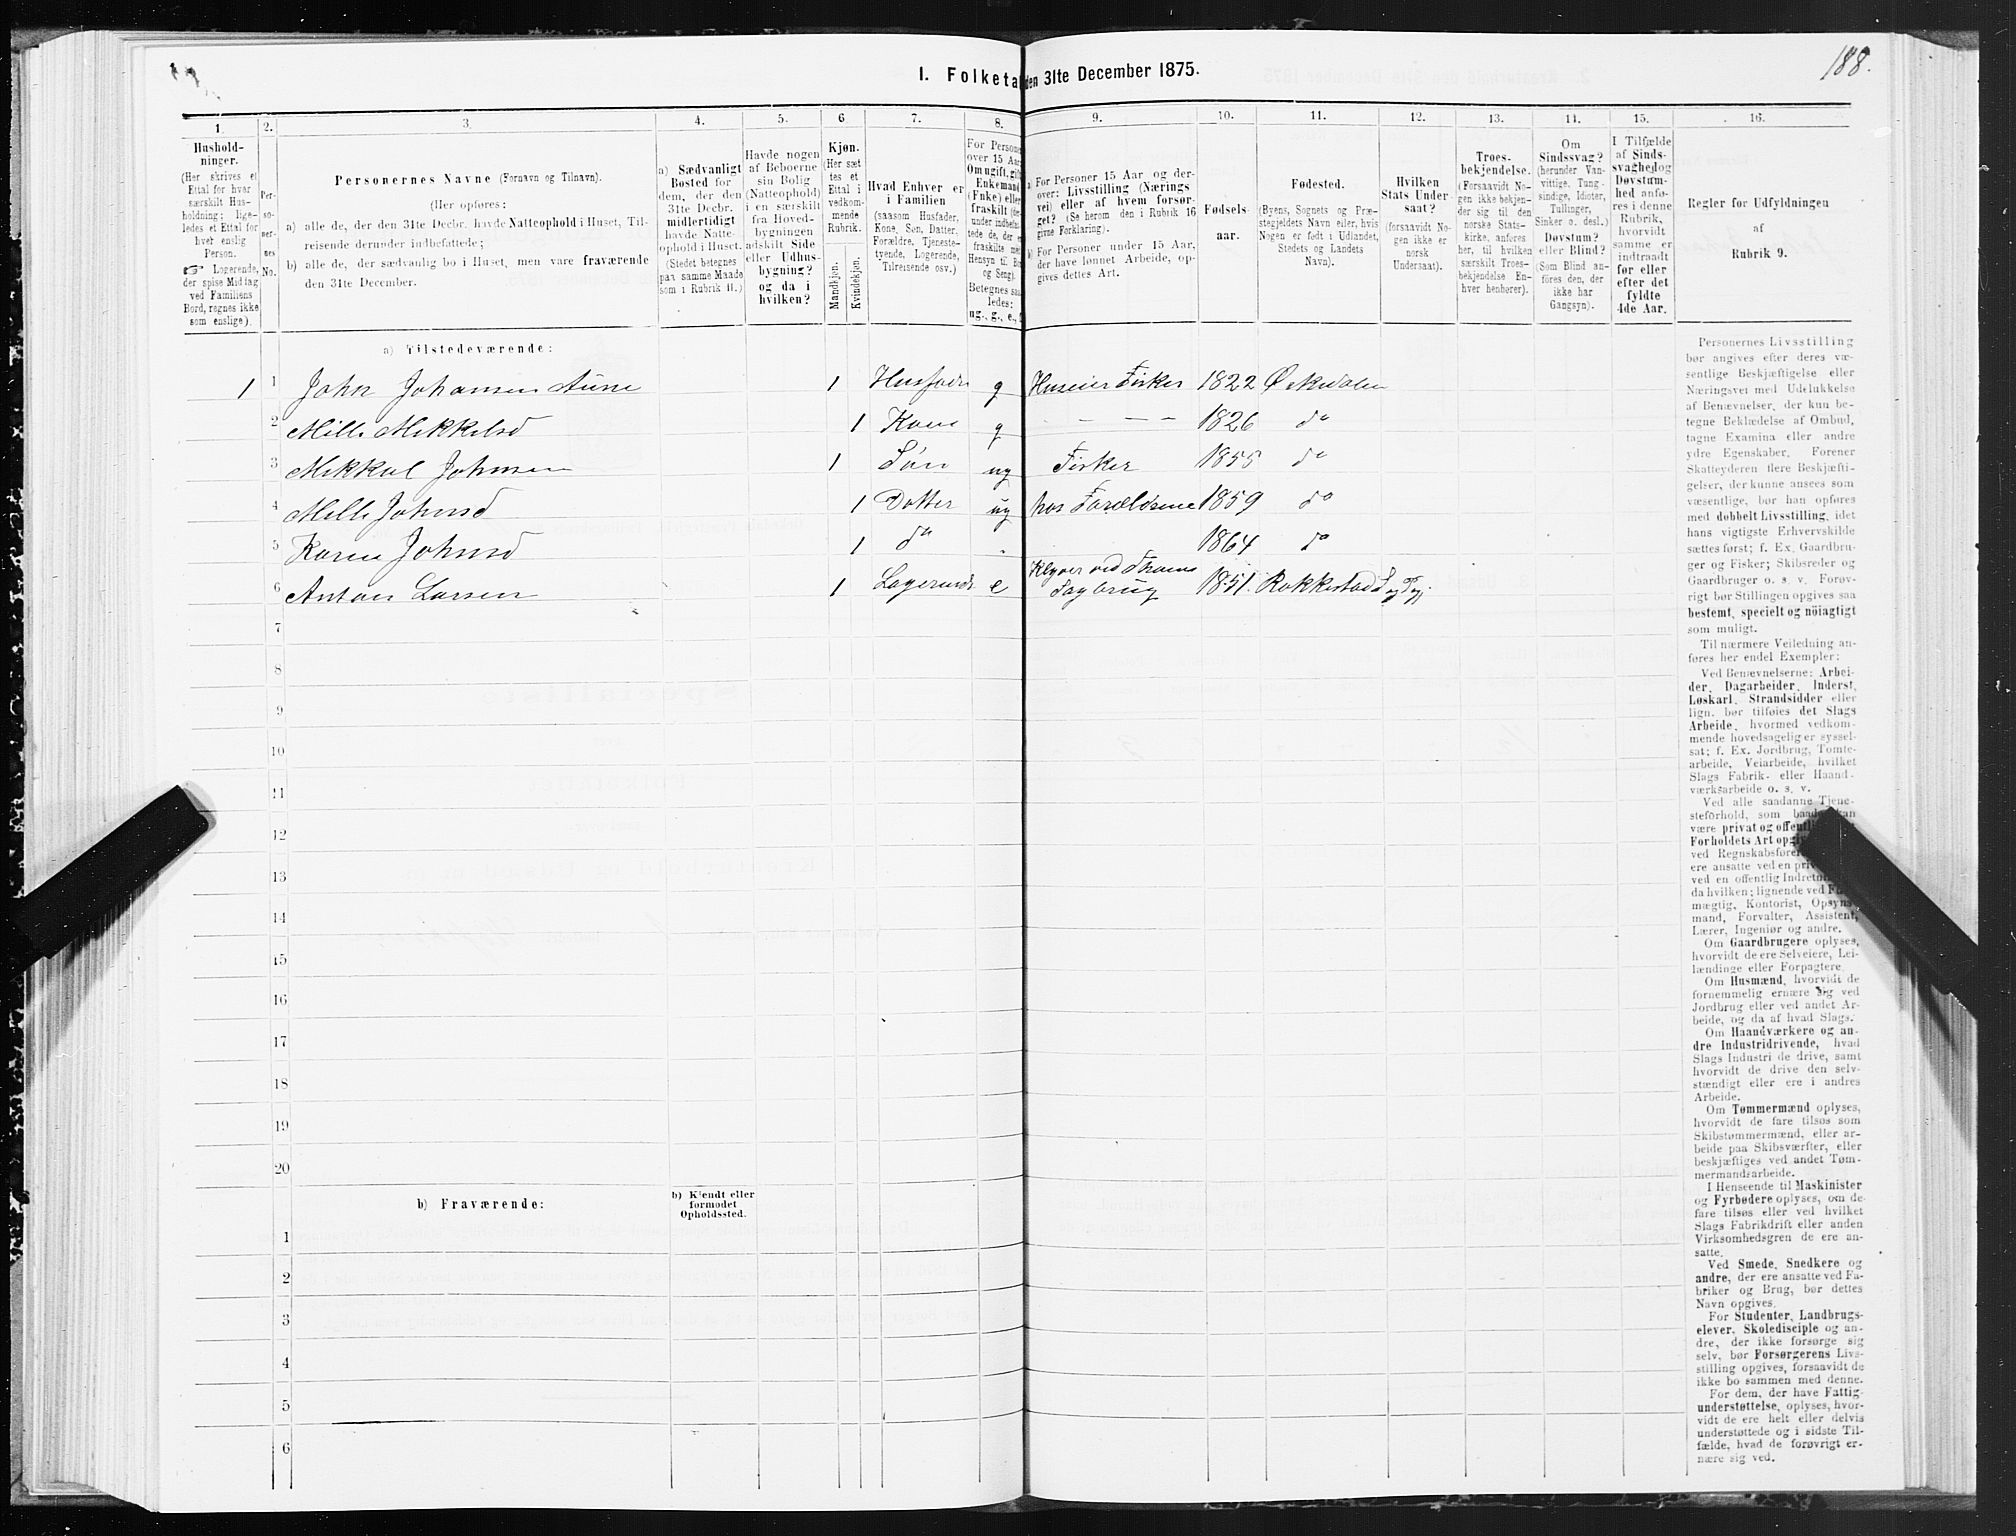 188.
I. Folketal den 31te December 1875.
1. 2. 3. 4. 5. 6 7. 8. 9. 10. 11. 12. 13. 14. 15. 16.
Hushold-
ninger.
(Her skrives et
Ettal for hver
særskilt Hus-
holdning; lige-
ledes et Ettal for
hver enslig
Person.
☞ Logerende,
der spise Middag
ved Familiens
Bord, regnes ikke
som enslige).
Per-
so-
ner-
nes
No.
Personernes Navne (Fornavn og Tilnavn).
(Her opføres:
a) alle de, der den 31te Decbr. havde Natteophold i Huset, Til-
reisende derunder indbefattede;
b) alle de, der sædvanlig bo i Huset, men vare fraværende
den 31te December.
a) Sædvanligt
Bosted for
dem, der den
31te Decbr.
midlertidigt
havde Natte-
ophold i Huset.
(Stedet betegnes
paa samme Maade
som i Rubrik 11.)
Havde nogen
af Beboerne
sin Bolig
(Natteophold)
i en særskilt
fra Hoved-
bygningen
adskilt Side
eller Udhus-
bygning?
og da i
hvilken?
Kjøn.
(Her sæt
tes et
Ettal i
vedkom-
mende
Rubrik.
Mandkjøn.
Kvindekjøn.
Hvad Enhver er
i Familien
(saasom Husfader,
Kone, Søn, Datter,
Forældre, Tjeneste-
tyende, Logerende,
Tilreisende osv.)
For Persone
over 15 Aar
Om ugift, gift
Enkemand
(Enke) eller
fraskilt
Betegnes saa
ledes:
ug., g., e.,
a) For Personer 15 Aar og der-
over: Livsstilling (Nærings
vei) eller af hvem forsør-
get? (Se herom den i Rubrik 16
givne Forklaring).
b) For Personer under 15 Aar,
der have lønnet Arbeide, op-
gives dettes Art.
Fødsels-
aar.
Fødested.
(Byens, Sognets og Præ-
stegjeldets Navn eller, hvis
Nogen er født i Udlandet,
Stedets og Landets
Navn).
Hvilken
Stats Under-
saat?
(forsaavidt No-
gen ikke er
norsk
Undersaat).
Troes-
bekjendelse.
(Forsaavidt No-
gen ikke bekjen-
der sig til den
norske Stats-
kirke, anføres
her, til hvilken
særskilt Troes-
bekjendelse En-
hver henhører).
Om
Sindssvag?
(herunder Van-
vittige, Tung-
sindige, Idioter,
Tullinger,
Sinker o. desl.)
Døvstum?
eller Blind?
(Som Blind an-
føres den, der
ikke har
Gangsyn).
I Tilfælde
af Sinds-
svaghed og
Døvstum-
hed anfø-
res i denne
Rubrik,
hvorvidt
samme er
indtraadt
før eller
efter det
fyldte
4de Aar.
Regler for Udfyldningen
af
Rubrik 9.
a) Tilstedeværende:
1 1 John Johansen Aune 1 Husfader g Huseier Fisker 1822 Ørskedalen
2 Mille Mikkelsd 1 Kone g — — — 1826 do
3 Mikkal Johnsen 1 Søn ug Fisker 1855 do
4 Mille Johnsd 1 Datter ug hos Forældrene 1859 do
5 Karen Johnsd 1 do 1864 do
6 Anton Larsen 1 Logerende e Klyver ved Sagbrug 1851. Rakkestad S og Pgj.
7
8
9
10
11
12
13
14
15
16
17
18
19
20
b) Fraværende:
b) Kjendt eller
formodet
Opholdssted.
1
2
3
4
5
6
Personernes Livsstilling
bør angives efter deres væ-
sentlige Beskjæftigelse eller
Næringsvei med Udelukkelse
af Benævnelser, der kun be-
tegne Beklædelse af Ombud,
tagne Examina eller andre
ydre Egenskaber. Forener
Skatteyderen flere Beskjæfti-
gelser, der kunne ansees som
væsentlige, bør han opføres
med dobbelt Livsstilling, idet
hans vigtigste Erhvervskilde
sættes først; f. Ex. Gaardbru-
ger og Fisker; Skibsreder og
Gaardbruger o. s. v. Forøv-
rigt bør Stillingen opgives saa
bestemt, specielt og nöiagtigt
som muligt.
Til nærmere Veiledning an-
føres her endel Exempler:
Ved Benævnelserne: Arbei-
der, Dagarbeider, Inderst,
Løskarl, Strandsidder eller
lign. bør tilføies det Slags
Arbeide, hvormed vedkom-
mende hovedsagelig er syssel-
sat; f. Ex. Jordbrug, Tomte-
arbeide, Veiarbeide, hvilket
Slags Fabrik- eller Haand-
værksarbeide o. s. v.
Ved alle saadanne Tjene-
steförhold, som baade kan
være privat og offentligt
Forholdets Art opgives
ved Regnskabsfører
ere ansatte ved en
ved en offentlig Indretning
da hvilken; lignende ved
mægtig, Kontorist, Opsyns
mand, Forvalter, Assistent,
Lærer, Ingeniør og andre.
Om Gaardbrugere oplyses,
hvorvidt de ere Selveiere, Lei-
lændinge eller Forpagtere.
Om Husmænd, hvorvidt de
fornemmelig ernære sig ved
Jordbrug eller ved andet Ar-
beide, og da af hvad Slags.
Om Haandværkere og an-
dre Industridrivende, hvad
Slags Industri de drive, samt
hvorvidt de drive den selv-
stændigt eller ere i andres
Arbeide.
Om Tømmermænd oplyses,
hvorvidt de fare tilsøs som
Skibstømmermænd, eller ar-
beide paa Skibsværfter, eller
beskjæftiges ved andet Tøm-
mermandsarbeide.
I Henseende til Maskinister
og Fyrbødere oplyses, om de-
fare tilsøs eller ved hvilket
Slags Fabrikdrift eller anden
Virksomhedsgren de ere an-
satte.
Ved Smede, Snedkere og
andre, der ere ansatte ved Fa-
briker og Brug, bør dettes
Navn opgives.
For Studenter, Landbrugs-
elever, Skoledisciple og an-
dre, der ikke forsørge sig
selv, bør Forsørgerens Livs-
stilling opgives, forsaavidt de
ikke bo sammen med denne.
For dem, der have Fattig-
understøttelse, oplyses, hvor-
vidt de ere helt eller delvis
understøttede og i sidste Til-
fælde, hvad de forøvrigt er-
nære sig ved.